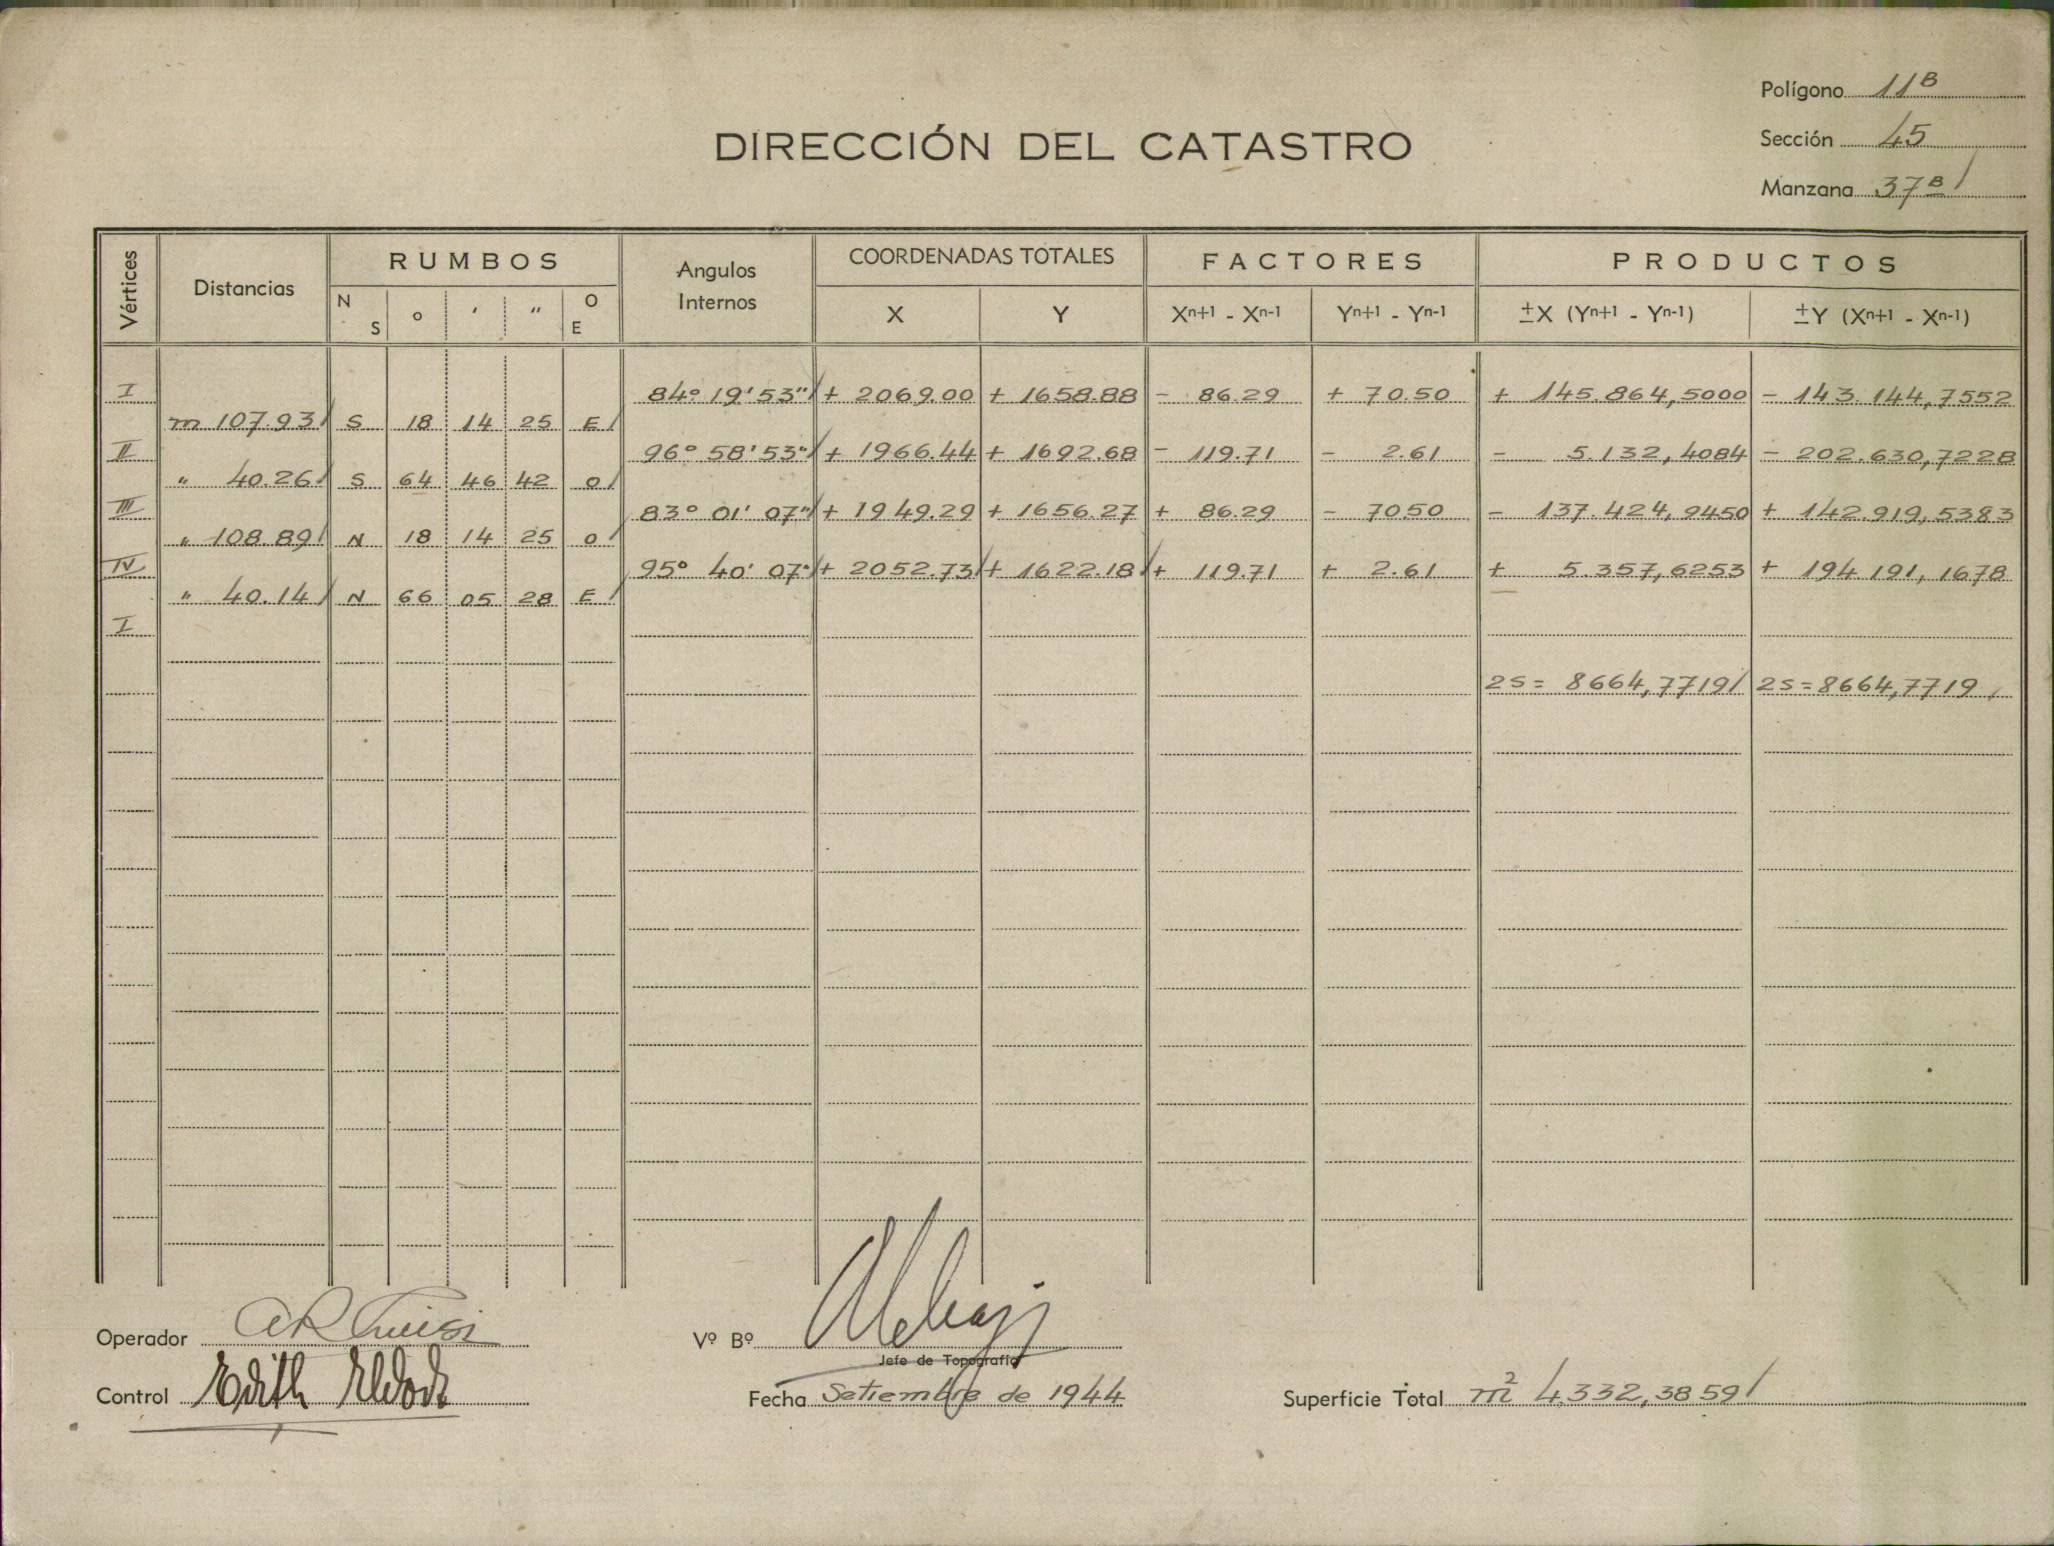 Polígono 11B
Sección 45
Manzana 37B
DIRECCIÓN DEL CATASTRO
Vértices Distancias RUMBOS Angulos Internos COORDENADAS TOTALES FACTORES PRODUCTOS
N S o ' " O E X Y Xn+1 - Xn-1 Yn+1 - Yn-1 ±X (Yn+1 - Yn-1) ±Y (Xn+1 - Xn-1)
I 84º 19' 53" + 2069.00 + 1658.88 - 86.29 + 70.50 + 145.864,5000 - 143.144,7552
m 107.93 S 18 14 25 E
II 96º 58' 53" + 1966.44 + 1692.68 - 119.71 - 2.61 - 5.132,4084 - 202.630,7228
" 40.26 S 64 46 42 O
III 83º 01' 07" + 1949.29 + 1656.27 + 86.29 - 7050 - 137.424,9450 + 142.919,5383
" 108.89 N 18 14 25 O
IV 95º 40' 07" + 2052.73 + 1622.18 + 119.71 + 2.61 + 5.357,6253 + 194 191,1678
" 40.14 N 66 05 28 E
I
2S = 8664,7719 2S = 8664,7719
Operador
Vº Bº
Jefe de Topografía
Control Edith
Fecha Setiembre de 1944
Superficie Total m2 4.332,3859